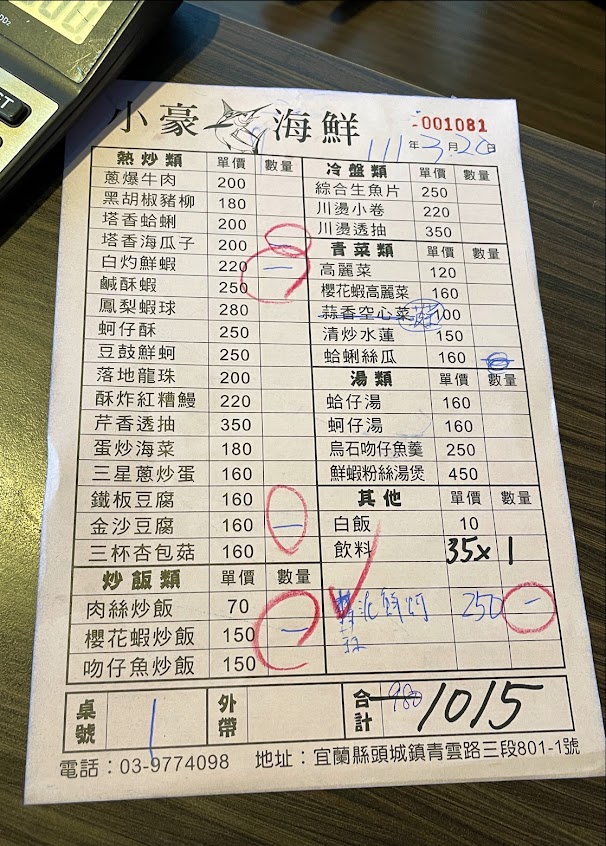 小豪 海鮮
-001081
111年3月20日
熱炒類 單價 數量
蔥爆牛肉 200
黑胡椒豬柳 180
塔香蛤蜊 200
塔香海瓜子 200 一
白灼鮮蝦 220 一
鹹酥蝦 250
鳳梨蝦球 280
蚵仔酥 250
豆鼓鮮蚵 250
落地龍珠 200
酥炸紅糟鰻 220
芹香透抽 350
蛋炒海菜 180
三星蔥炒蛋 160
鐵板豆腐 160
金沙豆腐 160 一
三杯杏包菇 160
炒飯類 單價 數量
肉絲炒飯 70
櫻花蝦炒飯 150 一
吻仔魚炒飯 150
冷盤類 單價 數量
綜合生魚片 250
川燙小卷 220
川燙透抽 350
青菜類 單價 數量
高麗菜 120
櫻花蝦高麗菜 160
蒜香空心菜 100
清炒水蓮 150
蛤蜊絲瓜 160
湯類 單價 數量
蛤仔湯 160
蚵仔湯 160
烏石吻仔魚羹 250
鮮蝦粉絲湯煲 450
其他 單價 數量
白飯 10
飲料 35x 1
250 一
桌號 1
外帶
合計 980 1015
電話：03-9774098 地址：宜蘭縣頭城鎮青雲路三段801-1號